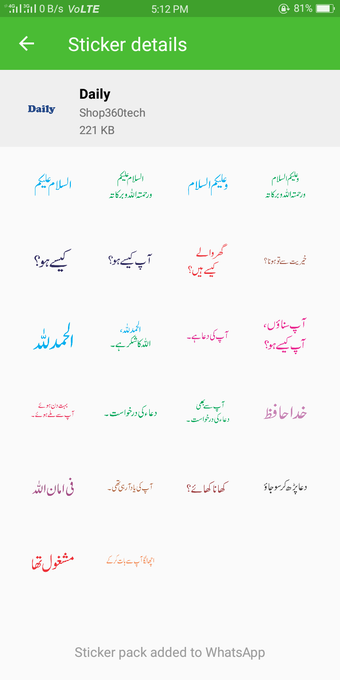 0 B/s VoLTE 5:12 PM 81%
Sticker details
Daily
Daily
Shop360tech
221 KB
السلام علیکم
السلام علیکم
ورحمتہ اللہ وبرکاتہ
وعلیکم السلام
وعلیکم السلام
ورحمتہ اللہ وبرکاتہ
کیسے ہو؟
آپ کیسے ہو؟
گھر والے
کیسے ہیں؟
خیریت سے تو ہونا؟
الحمد للہ
الحمد للہ،
اللہ کا شکر ہے۔
آپ کی دعا ہے۔
آپ سناؤں،
آپ کیسے ہو؟
بہت دن ہوئے
آپ سے ملے ہوئے۔
دعاء کی درخواست۔
آپ سے بھی
دعاء کی درخواست۔
خدا حافظ
فی امان اللہ
آپ کی یاد آرہی تھی۔
کھانا کھائے؟
دعا پڑھ کر سو جاؤ
مشغول تھا
اچھا لگا آپ سے بات کر کے
Sticker pack added to WhatsApp